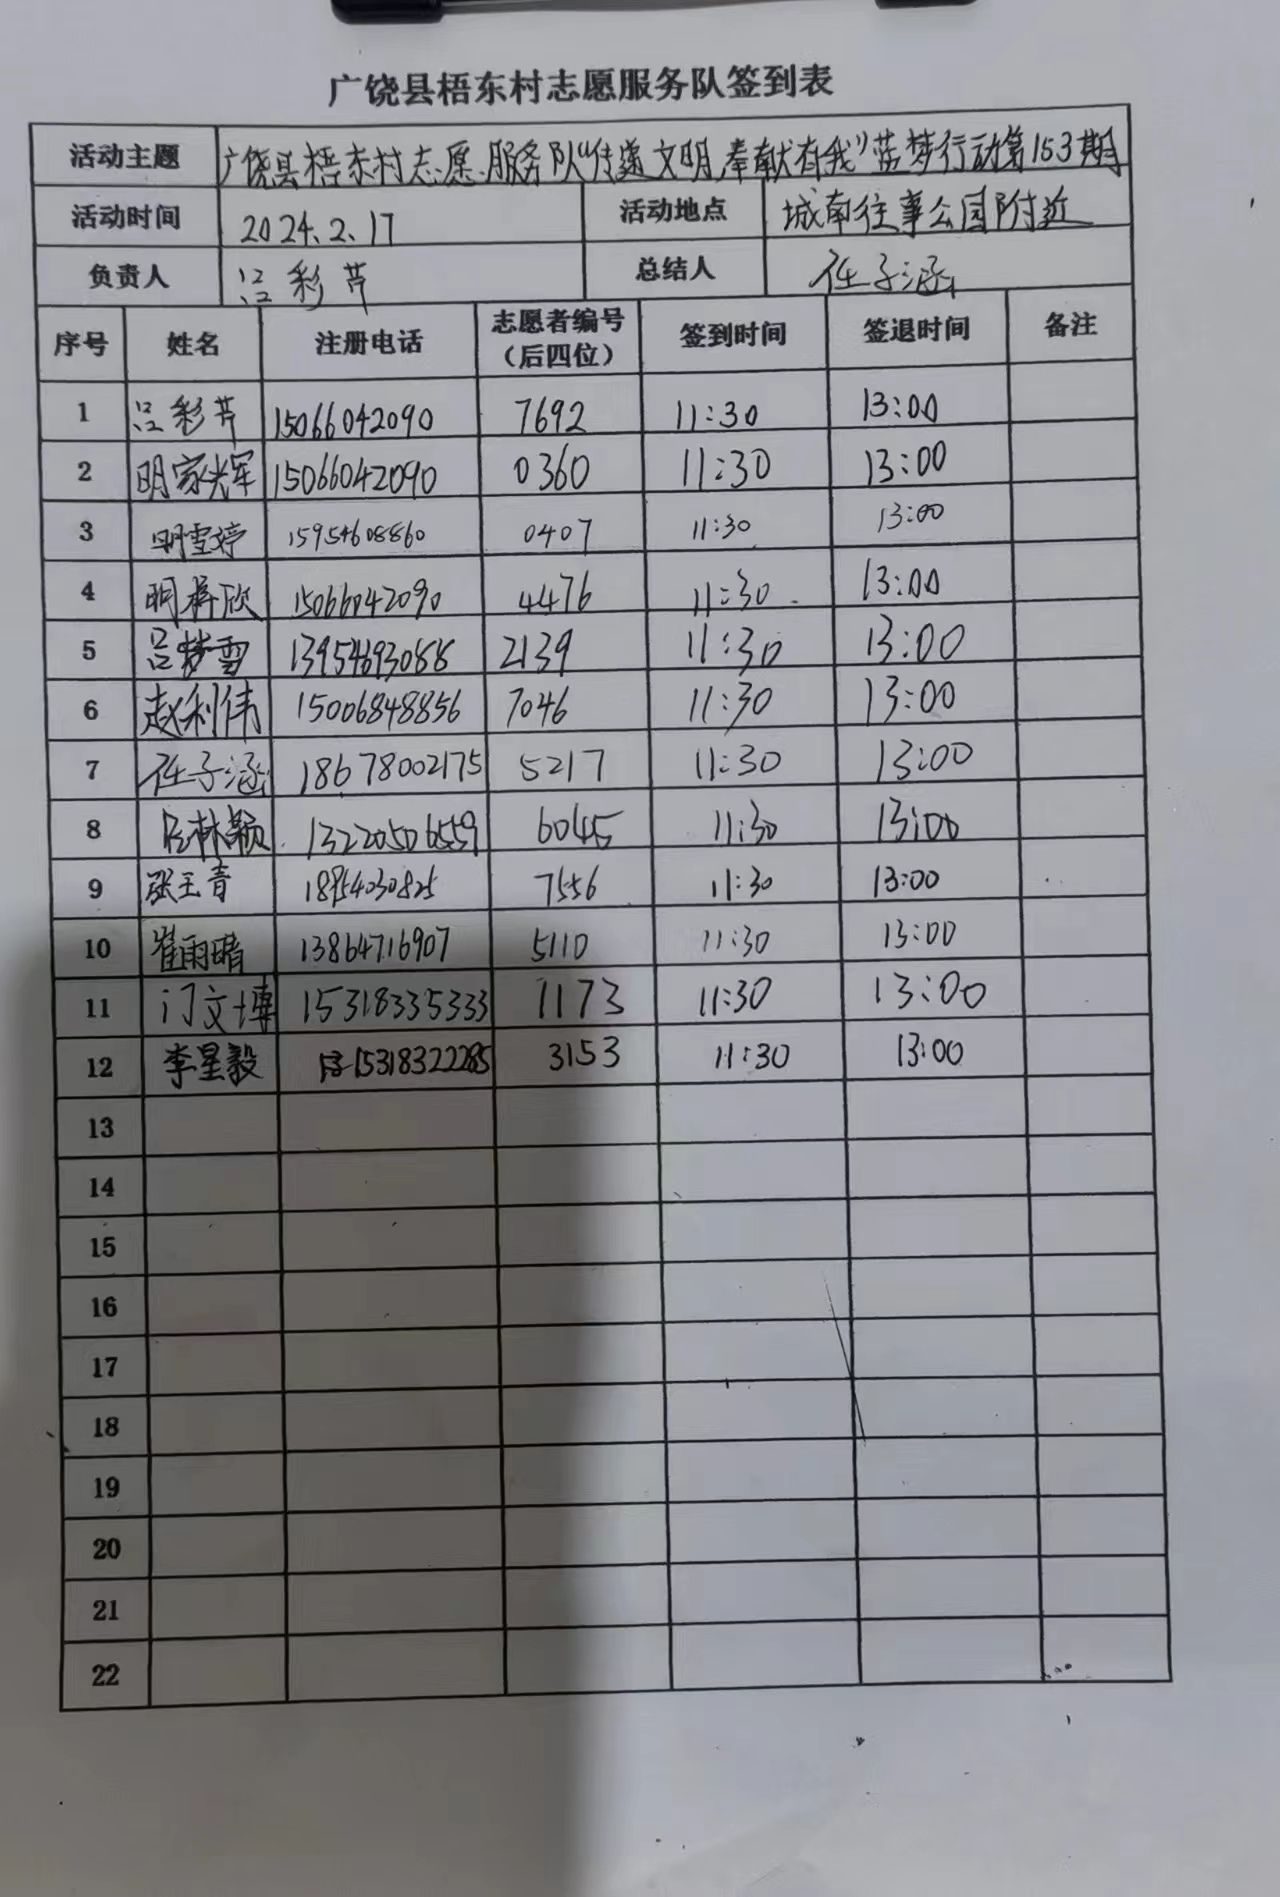 广饶县梧东村志愿服务队签到表
活动主题 广饶县梧东村志愿服务队“传递文明,奉献有我”蓝梦行动第153期
活动时间 2024.2.17 活动地点 城南往事公园附近
负责人 吕彩芹 总结人 任子涵
序号 姓名 注册电话 志愿者编号（后四位） 签到时间 签退时间 备注
1 吕彩芹 15066042090 7692 11:30 13:00
2 明家光军 15066042090 0360 11:30 13:00
3 明雪婷 15954608860 0407 11:30 13:00
4 明梓欣 15066042090 4476 11:30 13:00
5 吕梦雪 13954693088 2139 11:30 13:00
6 赵利伟 15006848856 7046 11:30 13:00
7 任子涵 18678002175 5217 11:30 13:00
8 林颖 13220506559 6045 11:30 13:00
9 张玉青 18954030825 7556 11:30 13:00
10 崔雨晴 13864716907 5110 11:30 13:00
11 门文博 15318335333 1173 11:30 13:00
12 李星毅 15318322285 3153 11:30 13:00
13
14
15
16
17
18
19
20
21
22